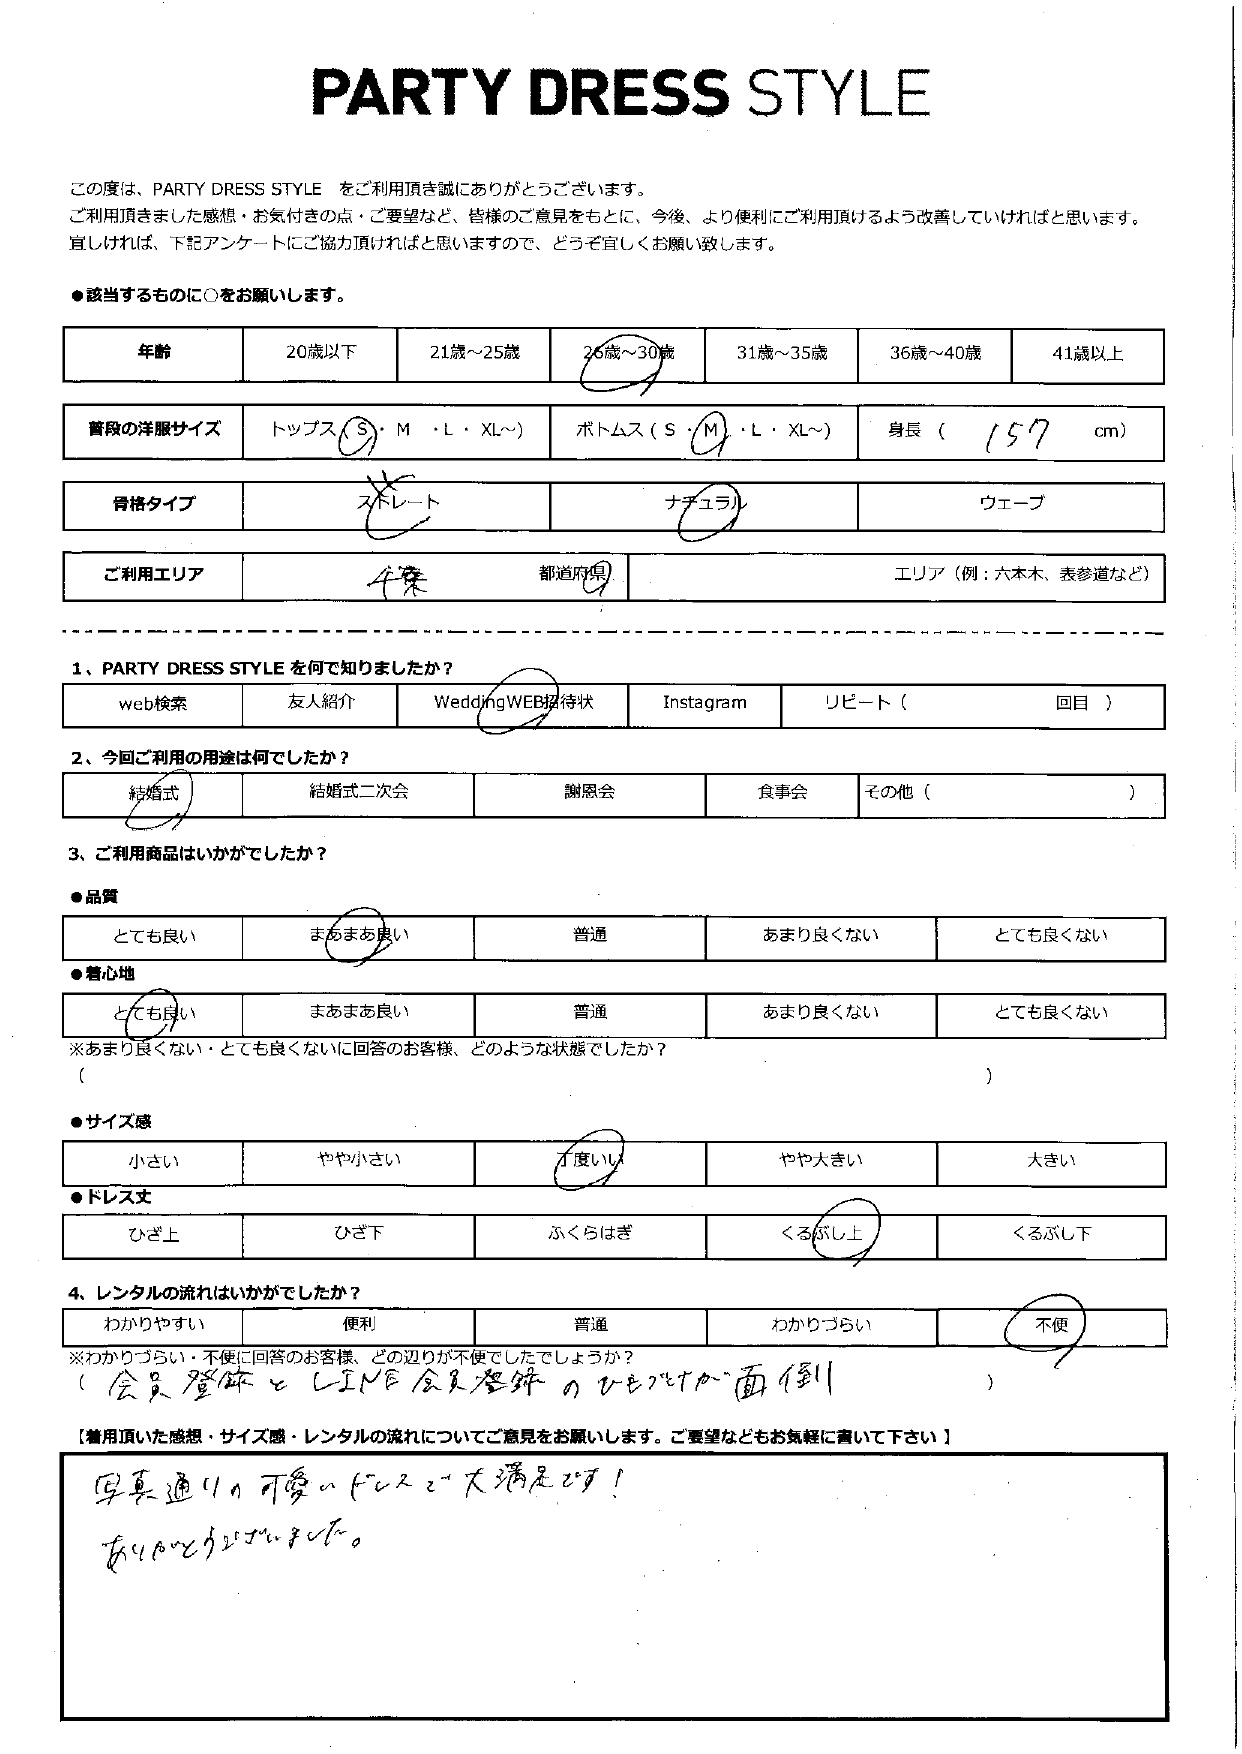 PARTY DRESS STYLE
この度は、PARTY DRESS STYLE をご利用頂き誠にありがとうございます。
ご利用頂きました感想・お気付きの点・ご要望など、皆様のご意見をもとに、今後、より便利にご利用頂けるよう改善していければと思います。
宜しければ、下記アンケートにご協力頂ければと思いますので、どうぞ宜しくお願い致します。
●該当するものに○をお願いします。
年齢 20歳以下 21歳～25歳 26歳～30歳 31歳～35歳 36歳～40歳 41歳以上
普段の洋服サイズ トップス（S・ M ・L ・ XL～) ボトムス ( S ・M ・L ・ XL～) 身長 ( 157 cm)
骨格タイプ ストレート ナチュラル ウェーブ
ご利用エリア 千葉 都道府県 エリア（例：六本木、表参道など）
1、PARTY DRESS STYLE を何で知りましたか？
web検索 友人紹介 WeddingWEB招待状 Instagram リピート（ 回目 ）
2、今回ご利用の用途は何でしたか？
結婚式 結婚式二次会 謝恩会 食事会 その他（ ）
3、ご利用商品はいかがでしたか？
●品質
とても良い まあまあ良い 普通 あまり良くない とても良くない
●着心地
とても良い まあまあ良い 普通 あまり良くない とても良くない
※あまり良くない・とても良くないに回答のお客様、どのような状態でしたか？
( )
●サイズ感
小さい やや小さい 丁度いい やや大きい 大きい
●ドレス丈
ひざ上 ひざ下 ふくらはぎ くるぶし上 くるぶし下
4、レンタルの流れはいかがでしたか？
わかりやすい 便利 普通 わかりづらい 不便
※わかりづらい・不便に回答のお客様、どの辺りが不便でしたでしょうか？
( 会員登録とLINE会員登録のひもづけが面倒 )
【着用頂いた感想・サイズ感・レンタルの流れについてご意見をお願いします。ご要望などもお気軽に書いて下さい 】
写真通りの可愛いドレスで大満足です！
ありがとうございました。